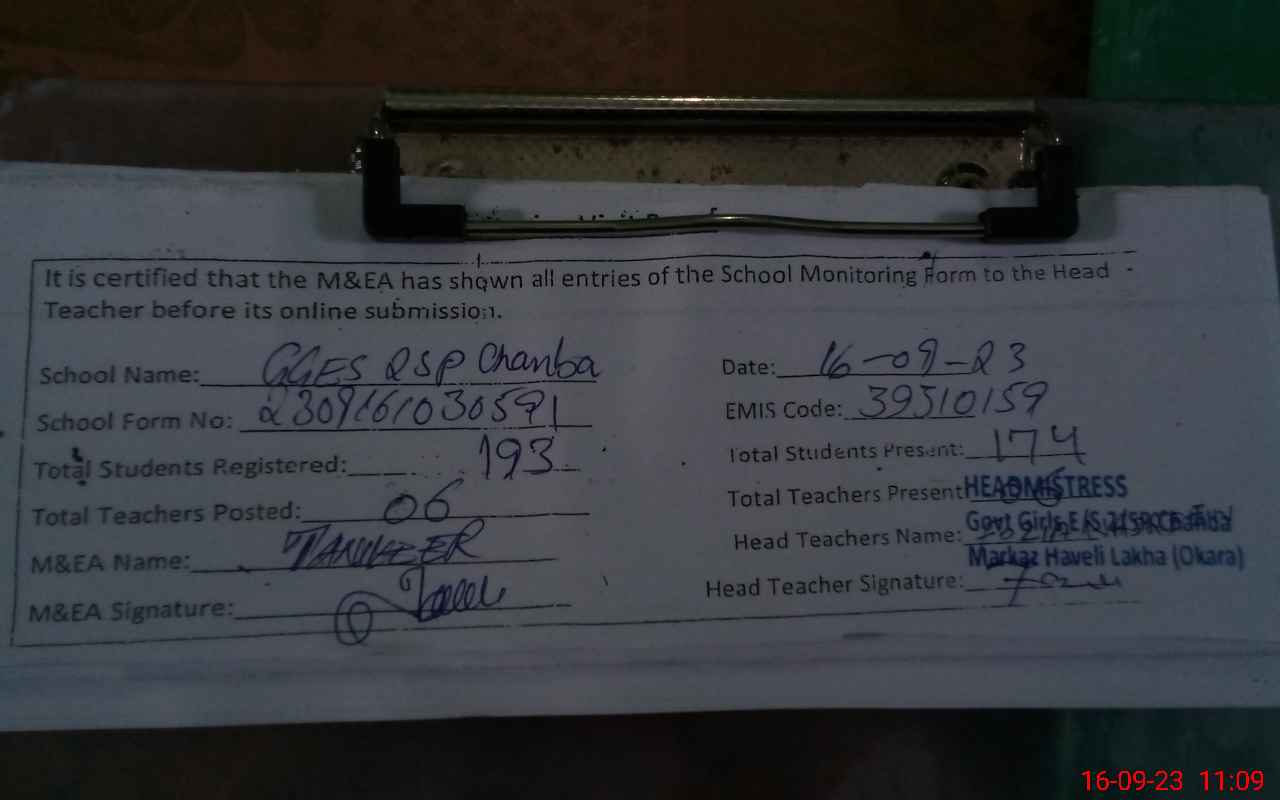 It is certified that the M&EA has shown all entries of the School Monitoring Form to the Head
Teacher before its online submission.
School Name: GGES 2SP Chanba
Date: 16-09-23
School Form No: 2309161030591
EMIS Code: 39310159
Total Students Registered: 193
Total Students Present: 174
Total Teachers Posted: 06
Total Teachers Present
HEADMISTRESS
M&EA Name:
Head Teachers Name:
Govt Girls E/S
Markaz Haveli Lakha (Okara)
M&EA Signature:
Head Teacher Signature:
16-09-23 11:09